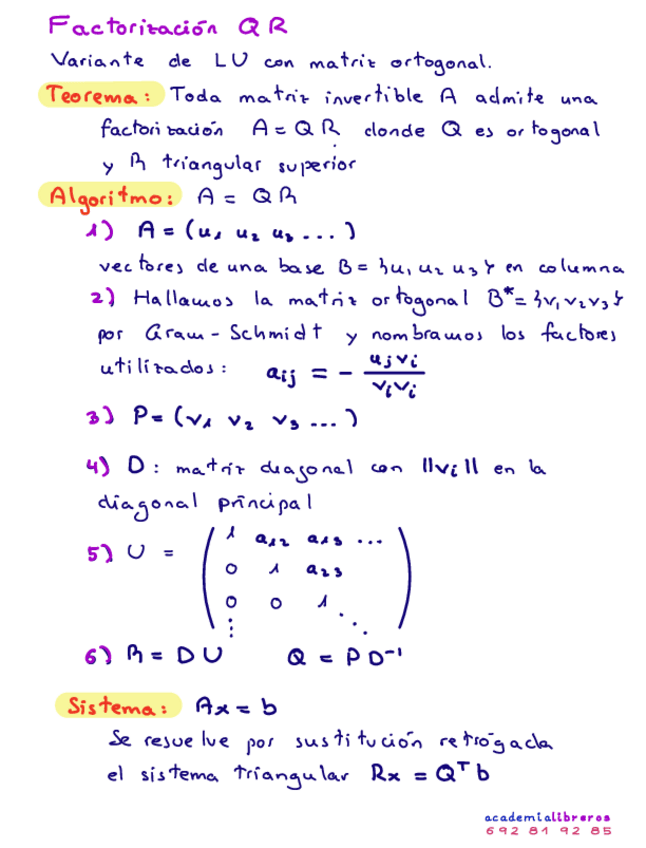 Factorización QR
Variante de LU con matriz ortogonal.
Teorema: Toda matriz invertible A admite una
factorización A = QR donde Q es ortogonal
y R triangular superior
Algoritmo: A = QR
1) A = (u₁ u₂ u₃ ...)
vectores de una base B = {u₁ u₂ u₃} en columna
2) Hallamos la matriz ortogonal B* = {v₁ v₂ v₃}
por Gram-Schmidt y nombramos los factores
utilizados: aᵢⱼ = - uⱼvᵢ / vᵢvᵢ
3) P = (v₁ v₂ v₃ ...)
4) D: matriz diagonal con ||vᵢ|| en la
diagonal principal
5) U = ( 1 a₁₂ a₁₃ ...
0 1 a₂₃
0 0 1 ⋱
⋮ )
6) R = DU Q = PD⁻¹
Sistema: Ax = b
Se resuelve por sustitución retrógada
el sistema triangular Rx = Qᵀb
academialibreros
692 81 92 85